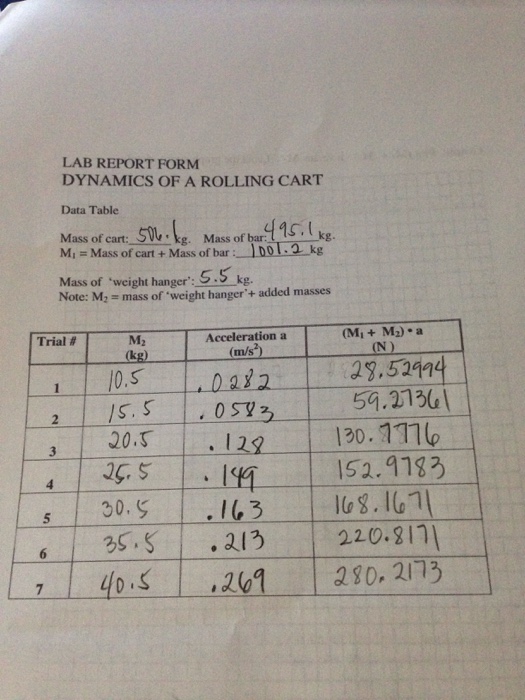 LAB REPORT FORM
DYNAMICS OF A ROLLING CART
Data Table
Mass of cart: 506.1 kg. Mass of bar: 495.1 kg.
M₁ = Mass of cart + Mass of bar : 1001.2 kg
Mass of 'weight hanger': 5.5 kg.
Note: M₂ = mass of 'weight hanger'+ added masses
Trial # M₂ (kg) Acceleration a (m/s²) (M₁ + M₂) • a (N)
1 10.5 .0282 28.52994
2 15.5 .0583 59.27361
3 20.5 .128 130.7776
4 25.5 .149 152.9783
5 30.5 .163 168.1671
6 35.5 .213 220.8171
7 40.5 .269 280.2173